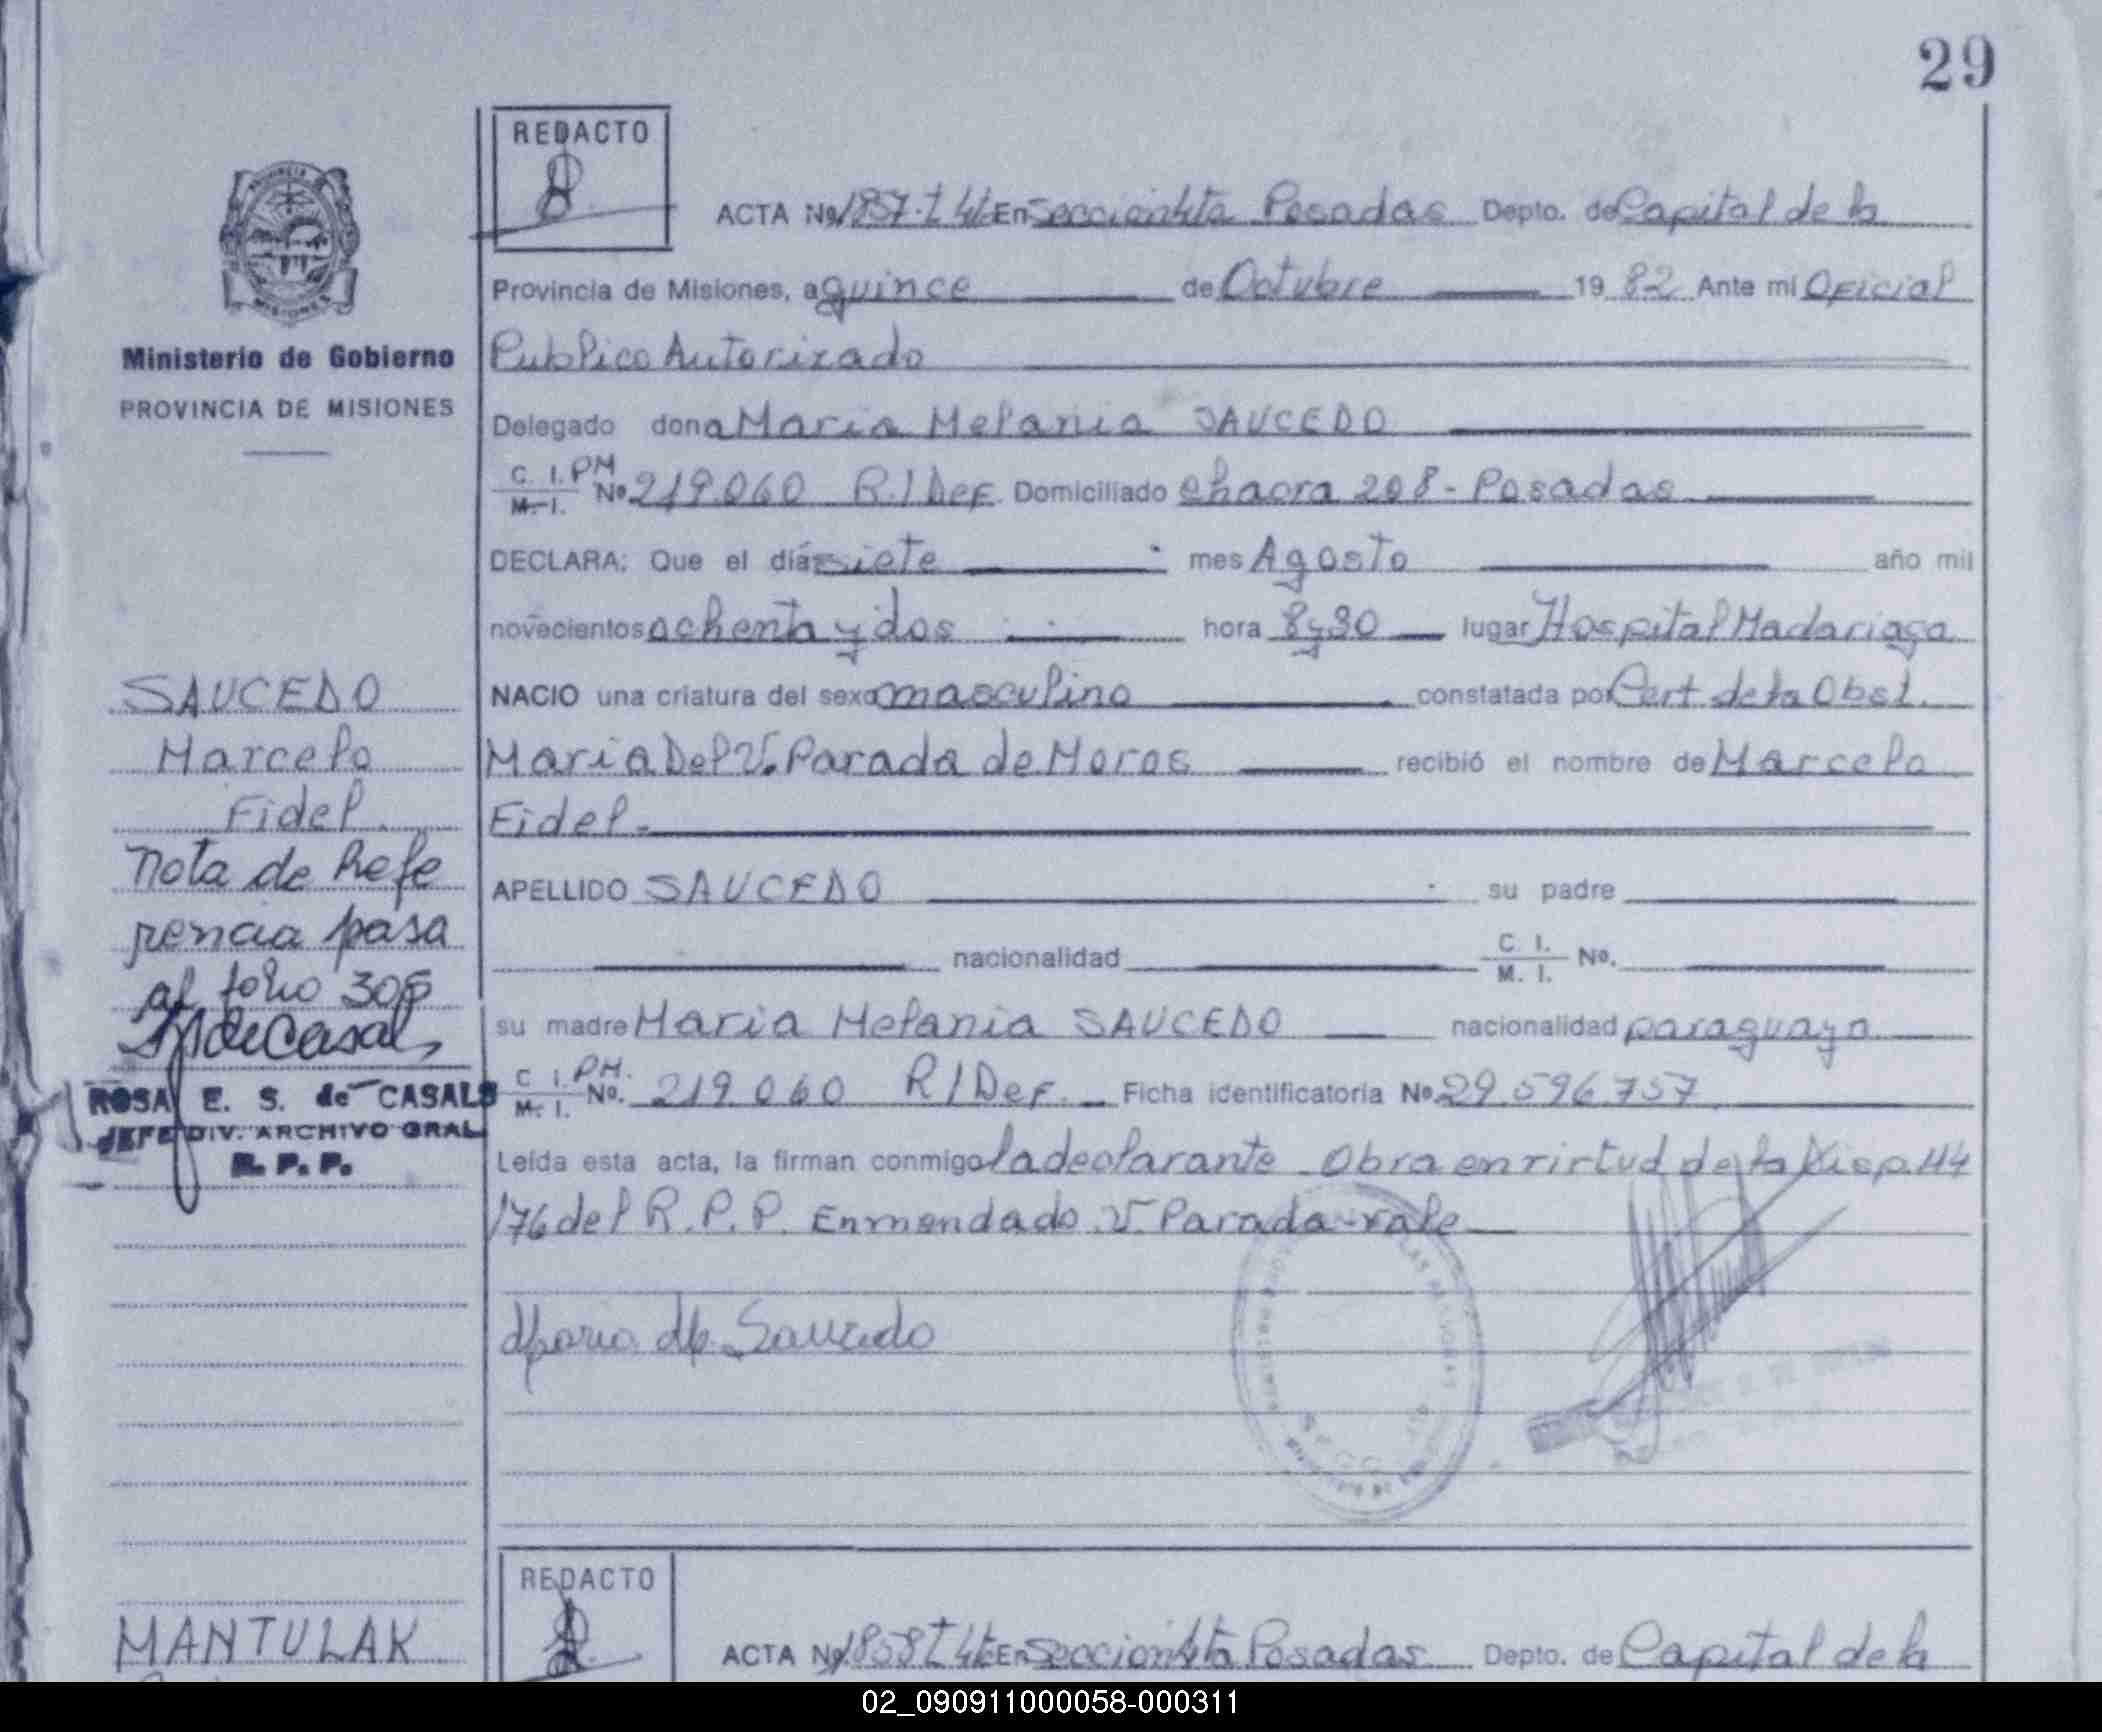 29
REDACTO
ACTA Nº 1857-T 4ta En Sección 4ta Posadas Depto. de Capital de la
Provincia de Misiones, a quince de Octubre 1982 Ante mi Oficial
Ministerio de Gobierno
PROVINCIA DE MISIONES
Publico Autorizado
Delegado dona Maria Melania SAUCEDO
C. I. PM
M. I. Nº 219.060 R./Def. Domiciliado chacra 208 - Posadas
DECLARA: Que el día siete mes Agosto año mil
novecientos ochenta y dos hora 8y30 lugar Hospital Madariaga
NACIO una criatura del sexo masculino constatada por Cert. de la Obst.
Maria Del V. Parada de Moros recibió el nombre de Marcelo
Fidel.
APELLIDO SAUCEDO su padre
nacionalidad C. I. M. I. No.
su madre Maria Melania SAUCEDO nacionalidad paraguaya
C. I. PM.
M. I. No. 219.060 R/Def. Ficha identificatoria Nº 29.596.757
Leída esta acta, la firman conmigo la declarante Obra en virtud de la Disp. 44
/76 del R.P.P. Enmendado V. Parada-vale
Maria M. Saucedo
SAUCEDO
Marcelo
Fidel.
Nota de Refe
rencia pasa
al folio 305
ROSA E. S. de CASALS
JEFE DIV. ARCHIVO GRAL
R. P. P.
REDACTO
MANTULAK
ACTA Nº 1858 T 4ta En Sección 4ta Posadas Depto. de Capital de la
02_090911000058-000311